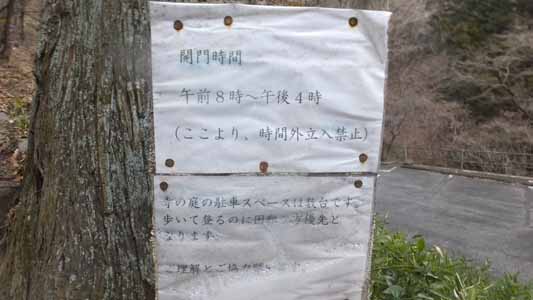 開門時間
午前８時～午後４時
（ここより、時間外立入禁止）
寺の庭の駐車スペースは数台です。
歩いて登るのに困難 方優先と
なります。
ご理解とご協力